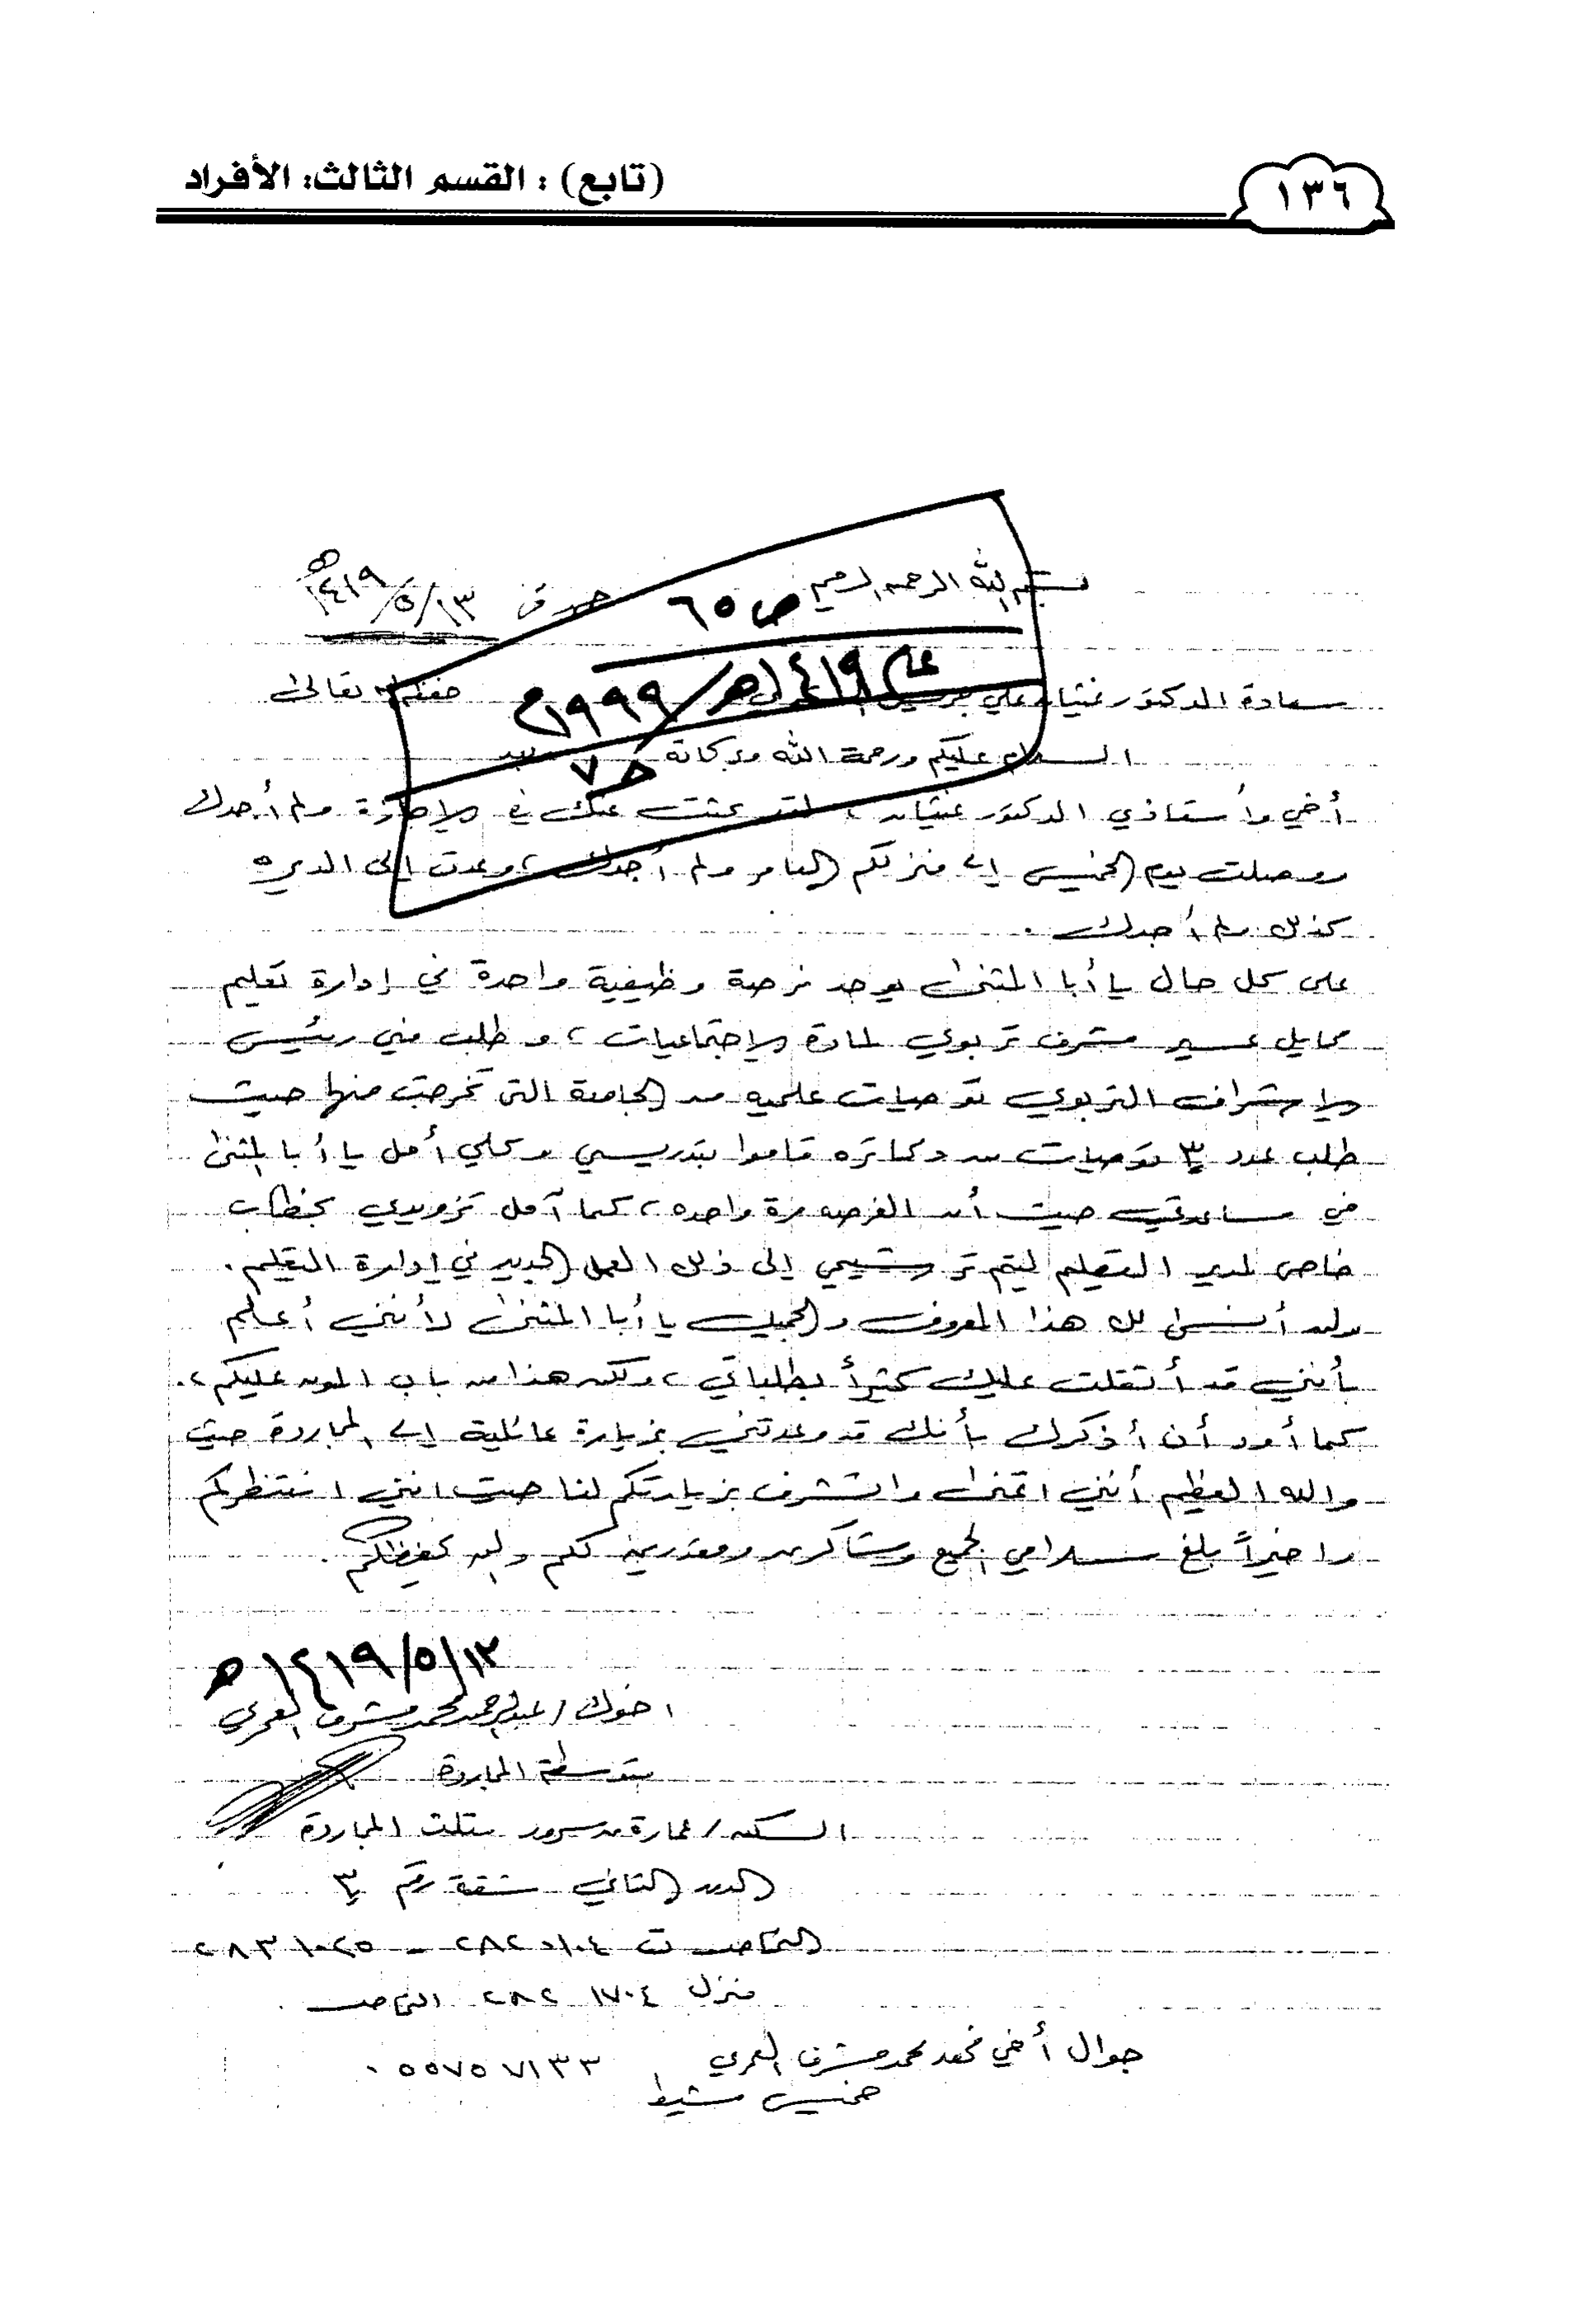 ١٣٦
(تابع) : القسم الثالث: الأفراد
بسم الله الرحمن الرحيم
١٤١٩/٥/١٣هـ
ص ٦٥
عام ١٤١٩هـ/١٩٩٩م
حـ ٧
سعادة الدكتور غيثان علي جريس حفظه الله تعالى
السلام عليكم ورحمة الله وبركاته
أخي وأستاذي الدكتور غيثان، لقد بحثت عنك في الإجازة ولم أجدك
ووصلت يوم الخميس إلى منزلكم العامر ولم أجدك، وعدت إلى الديره
كذلك ولم أجدك.
على كل حال يا أبا المثنى يوجد فرصة وظيفية واحدة في إدارة تعليم
محايل عسير مشرف تربوي لمادة الإجتماعيات، وطلب مني رئيس
الإشراف التربوي توصيات علميه من الجامعة التي تخرجت منها حيث
طلب عدد ٣ توصيات من دكاتره قاموا بتدريسي وكلي أمل يا أبا المثنى
في مساعدتي حيث أن الفرصه مرة واحده، كما آمل تزويدي بخطاب
خاص لمدير التعليم ليتم ترشيحي إلى ذلك العمل الجديد في إدارة التعليم.
ولن أنسى لك هذا المعروف والجميل يا أبا المثنى لأنني أعلم
بأنني قد أثقلت عليك كثيراً بطلباتي، ولكن هذا من باب المون عليكم،
كما أود أن أذكرك بأنك قد وعدتني بزيارة عائلية إلى المجاردة حيث
والله العظيم أنني اتمنى واتشرف بزيارتكم لنا حيث انني انتظركم
واخيراً بلغ سلامي الجميع وشاكرين ومقدرين لكم والله يحفظكم.
١٤١٩/٥/١٣هـ
اخوك / عبدالرحمن محمد مشرف العمري
متوسطة المجاردة
السكن / عمارة مثلث المجاردة
الدور الثاني شقة رقم ٣
منزل ٢٨٢١٧٠٤
جوال أخي محمد محمد مشرف العمري ٠٥٥٧٥٧١٣٣
خميس مشيط